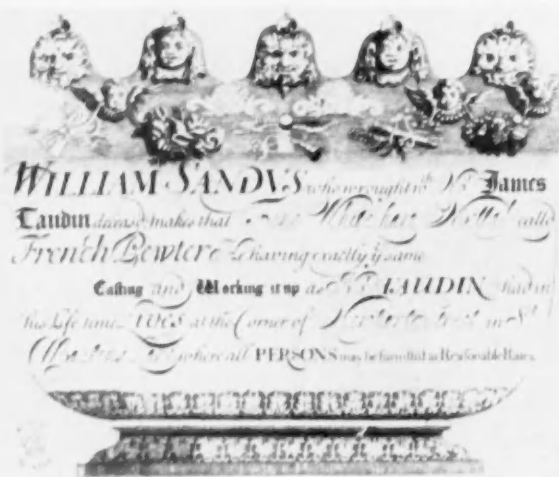 WILLIAM SANDVS who wrought wth Mr James
Taudin deceasd makes that Fine White hard Mettal calld
French Pewter he having exactly ye same
Casting and Working it up as Mr TAUDIN had in
his Life time. LIVES at the Corner of Street in St
Martins where all PERSONS may be furnisht at Reasonable Rates.